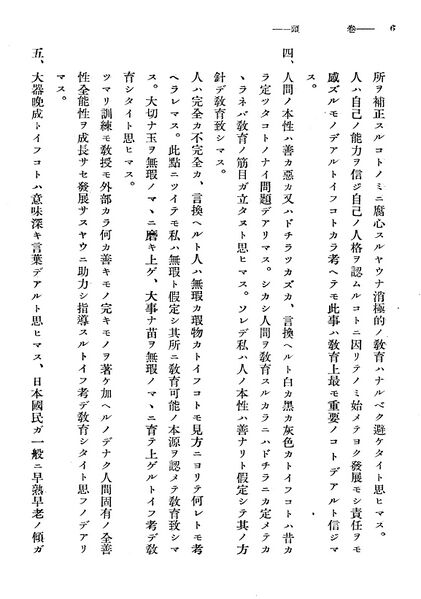 6 ―― 卷 頭 ――
所ヲ補正スルコトノミニ腐心スルヤウナ消極的ノ敎育ハナルベク避ケタイト思ヒマス。
人ハ自己ノ能力ヲ信ジ自己ノ人格ヲ認ムルコトニ因リテノミ始メテヨク發展モシ責任ヲモ
感ズルモノデアルトイフコトカラ考ヘテモ此事ハ敎育上最モ重要ノコトデアルト信ジマ
ス。
四、人間ノ本性ハ善カ惡カ又ハドチラツカズカ、言換ヘルト白カ黑カ灰色カトイフコトハ昔カ
ラ定ツタコトノナイ問題デアリマス。シカシ人間ヲ敎育スルカラニハドチラニカ定メテカ
ヽラネバ敎育ノ筋目ガ立タヌト思ヒマス。ソレデ私ハ人ノ本性ハ善ナリト假定シテ其ノ方
針デ敎育致シマス。
人ハ完全カ不完全カ、言換ヘルト人ハ無瑕カ瑕物カトイフコトモ見方ニヨリテ何レトモ考
ヘラレマス。此點ニツイテモ私ハ無瑕ト假定シ其所ニ敎育可能ノ本源ヲ認メテ敎育致シマ
ス。大切ナ玉ヲ無瑕ノマヽニ磨キ上ゲ、大事ナ苗ヲ無瑕ノマヽニ育テ上ゲルトイフ考デ敎
育シタイト思ヒマス。
ツマリ訓練モ敎授モ外部カラ何カ善キモノ完キモノヲ著ケ加ヘルノデナク人間固有ノ全善
性全能性ヲ成長サセ發展サスヤウニ助力シ指導スルトイフ考デ敎育シタイト思フノデアリ
マス。
五、大器晩成トイフコトハ意味深キ言葉デアルト思ヒマス、日本國民ガ一般ニ早熟早老ノ傾ガ